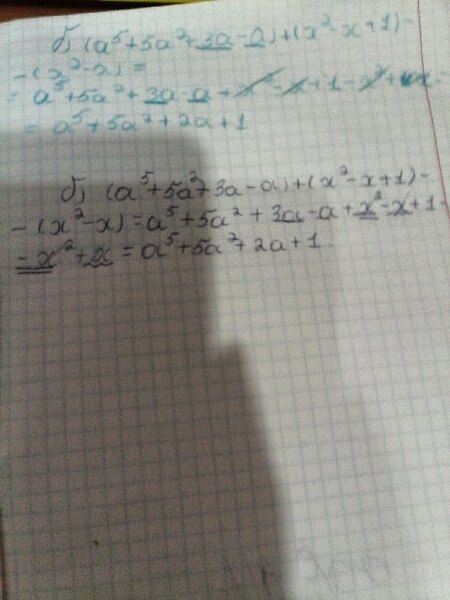 б) (a⁵+5a²+3a-a)+(x²-x+1)-
-(x²-x)=
= a⁵+5a²+3a-a+x²-x+1-x²+x=
= a⁵+5a²+2a+1
б) (a⁵+5a²+3a-a)+(x²-x+1)-
-(x²-x)=a⁵+5a²+3a-a+x²-x+1-
-x²+x=a⁵+5a²+2a+1.